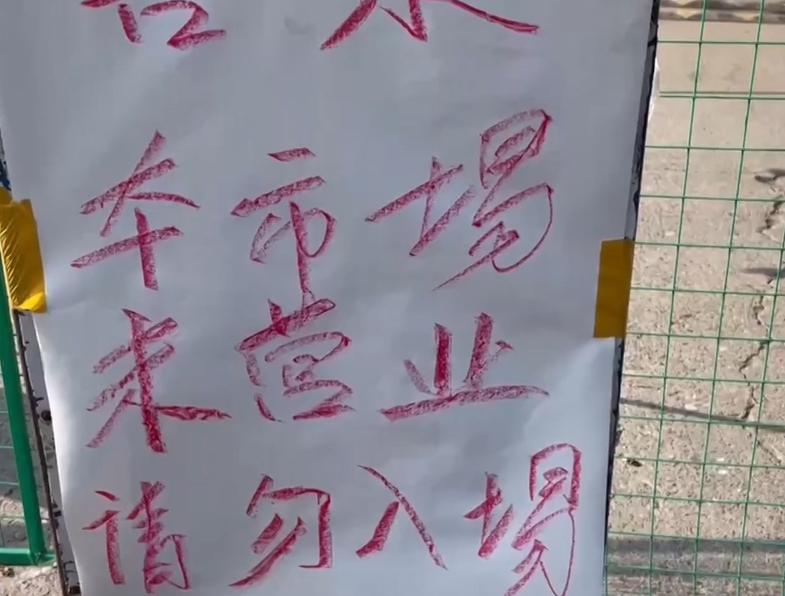 本市场
未营业
请勿入场